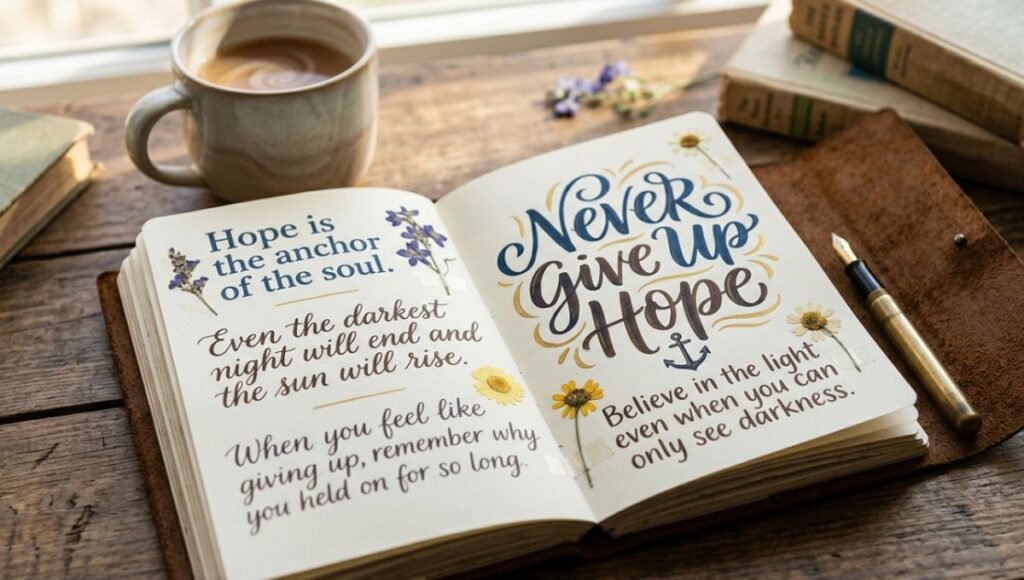 Hope is
the anchor
of the soul.
Even the darkest
night will end and
the sun will rise.
When you feel like
giving up, remember why
you held on for so long.
Never
Give Up
Hope
Believe in the light
even when you can
only see darkness.